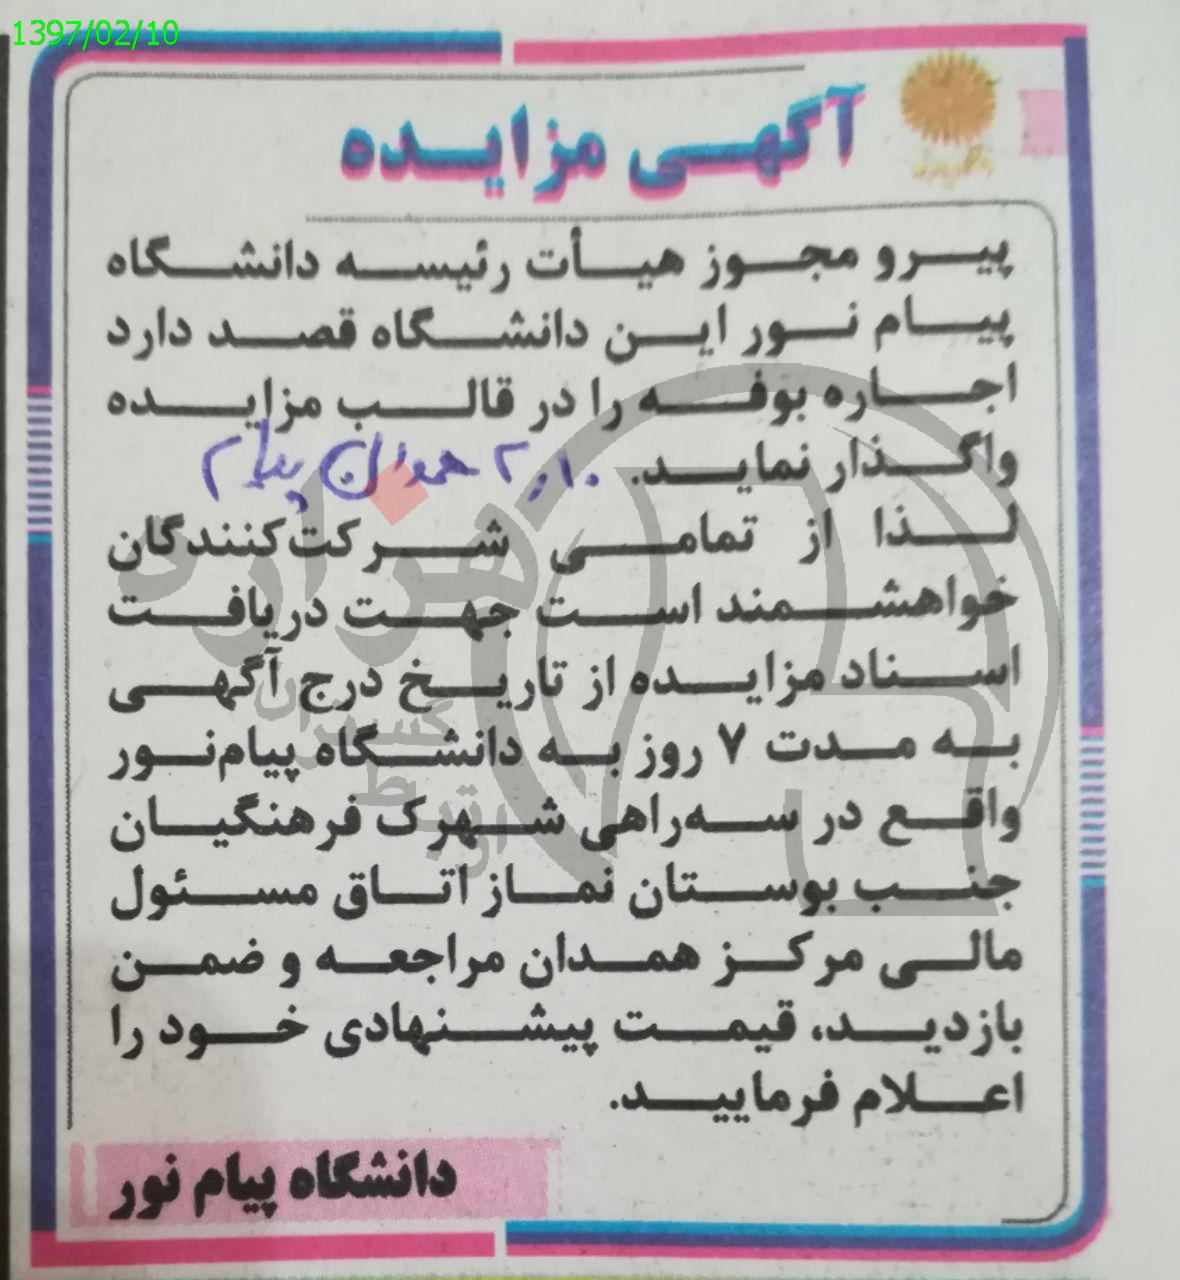 1397/02/10
آگهی مزایده
پیرو مجوز هیأت رئیسه دانشگاه
پیام نور این دانشگاه قصد دارد
اجاره بوفه را در قالب مزایده
واگذار نماید.
۲,۱۰ همدان پیام
لذا از تمامی شرکت‌کنندگان
خواهشمند است جهت دریافت
اسناد مزایده از تاریخ درج آگهی
به مدت ۷ روز به دانشگاه پیام‌نور
واقع در سه‌راهی شهرک فرهنگیان
جنب بوستان نماز اتاق مسئول
مالی مرکز همدان مراجعه و ضمن
بازدید، قیمت پیشنهادی خود را
اعلام فرمایید.
دانشگاه پیام نور
هزاره
گستران